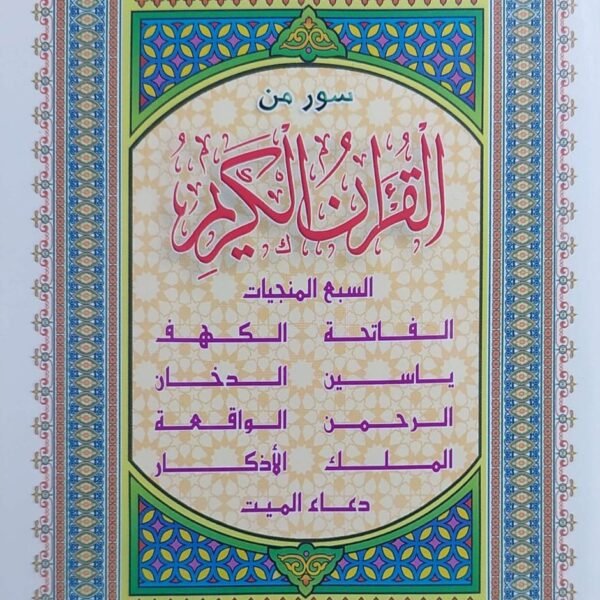 سور من
القرءان الكريم
السبع المنجيات
الفاتحة الكهف
ياسين الدخان
الرحمن الواقعة
الملك الأذكار
دعاء الميت